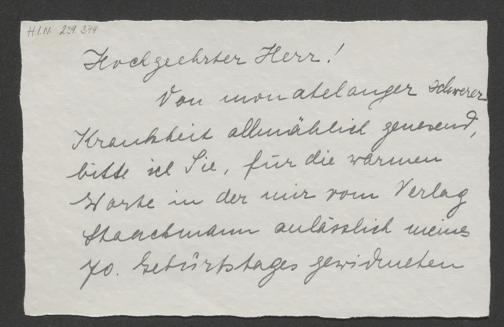 H.I.N. 239.374
Hochgeehrter Herr!
Von monatelanger schwerer
Krankheit allmählich genesend,
bitte ich Sie, für die warmen
Worte in der mir vom Verlag
Staackmann anlässlich meines
70. Geburtstages gewidmeten